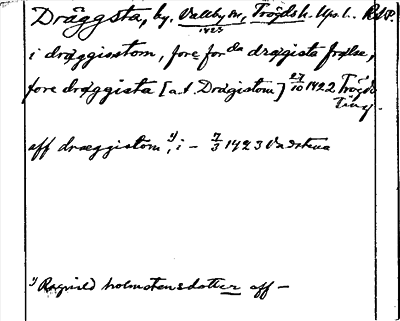 Dräggsta, by. Vallby sn, Trögds h. Ups. l. RAP.
1423
i dræggisstom, fore for da drægista frælse,
fore dræggista [a.t. Drägistom] 27/10 1422 Trögds
ting.
aff dræggistom 1), i - 7/3 1423 Vadstena
1) Ragnild holmstensdotter aff -